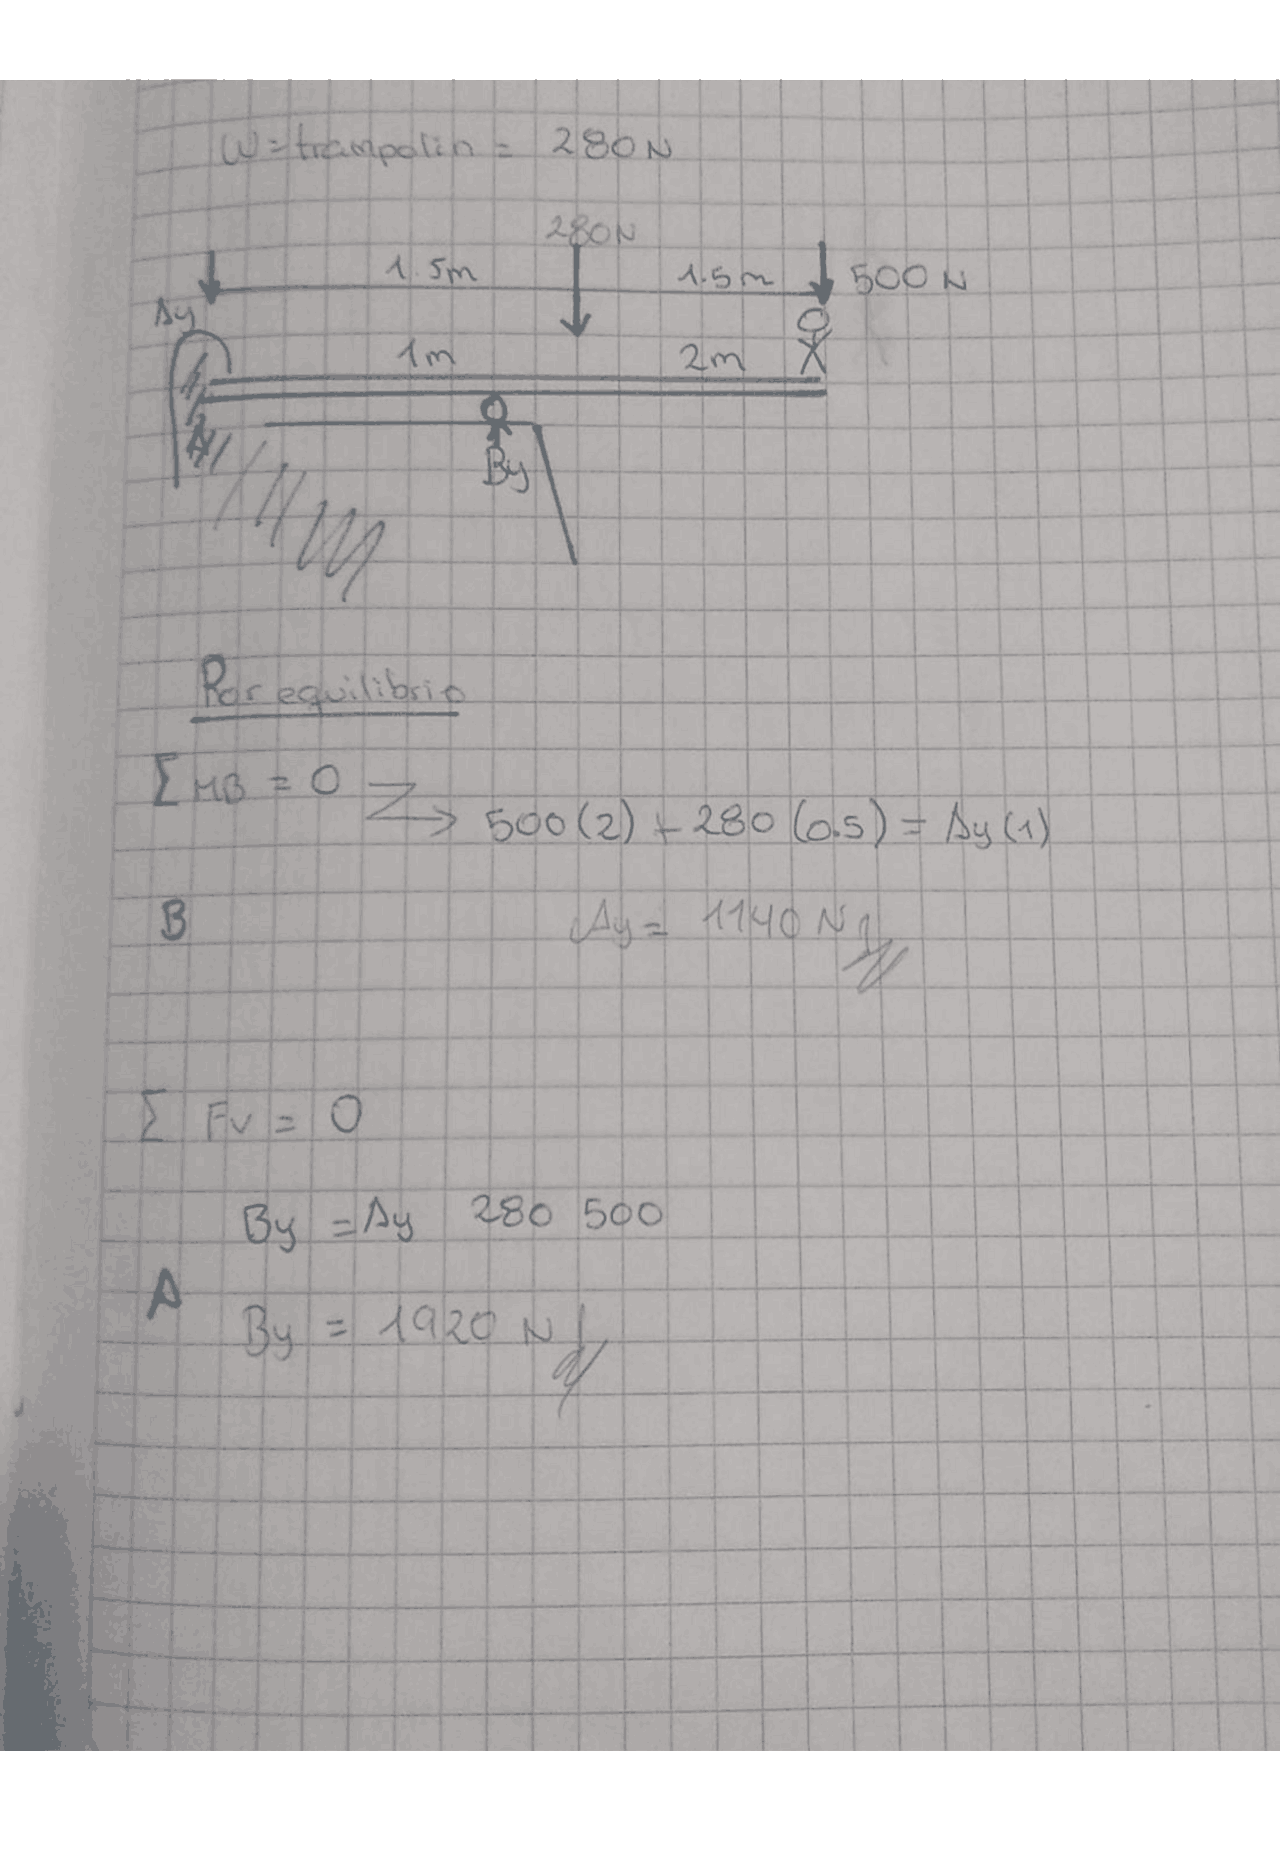 W = trampolin = 280 N
280N
1.5m 1.5m 500 N
Ay
1m 2m
A
By
Por equilibrio
Σ MB = 0
500(2) + 280 (0.5) = Ay (1)
B Ay = 1140 N
Σ Fv = 0
By = Ay 280 500
A
By = 1920 N